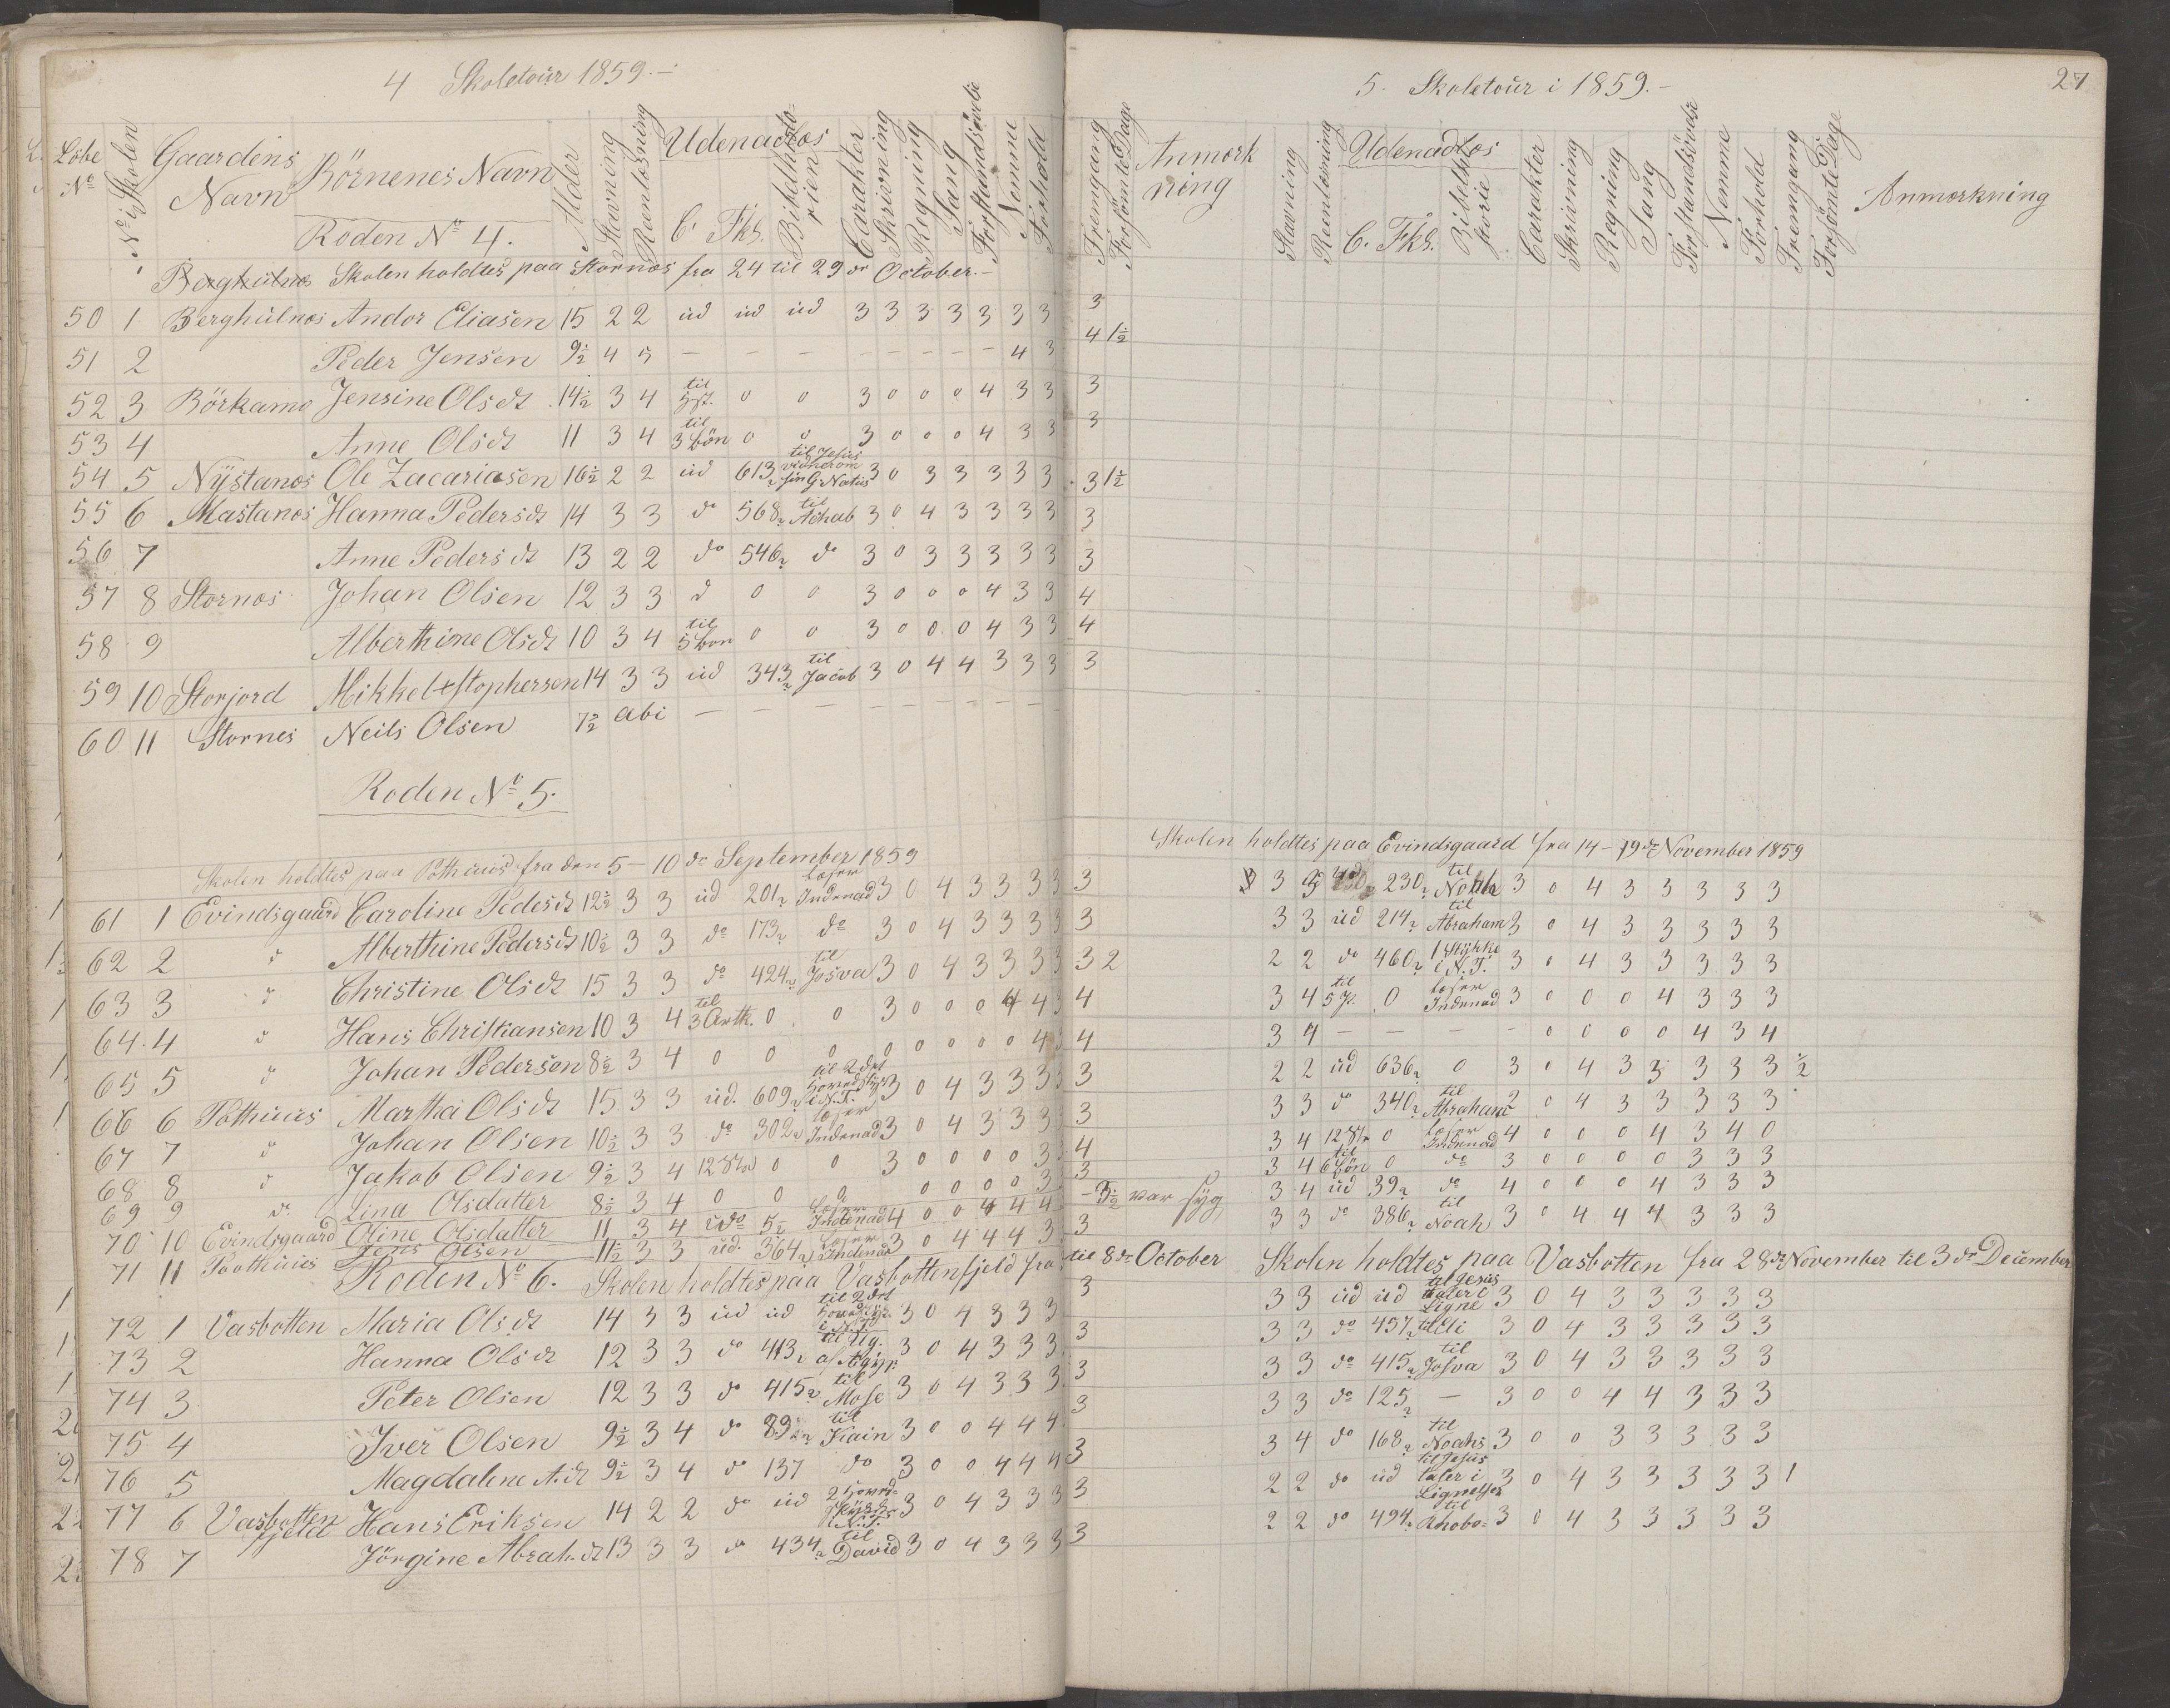 4 Skoletour 1859.-
Löbe No
No i Skolen
Gaardens Navn
Börnenes Navn
Alder
Stavning
Renlæsning
Udenadlæs
C. Fkl. Bibelhistorien
Carakter
Skrivning
Regning
Sang
Forstandsöv
Nemme
Forhold
Roden No 4.
Skolen holdtes paa Stornæs fra 24 til 29de October.-
50 1 Berghulnæs Andor Eliasen 15 2 2 ud ud ud 3 3 3 3 3 3 3 3
51 2 Peder Jensen 9½ 4 5 - - - - - - - - 4 3 4 1½
52 3 Börkamo Jensine Olsdt 14½ 3 4 til 5 pt. 0 0 3 0 0 0 4 3 3 3
53 4 Anne Olsdt 11 3 4 til 3 bön 0 0 3 0 0 0 4 3 3 3
54 5 Nÿstanæs Ole Zacariasen 16½ 2 2 ud 613 til Jesus 3 0 3 3 3 3 3 3 1½
55 6 Mastanæs Hanna Pedersdt 14 3 3 do 568 til Achab 3 0 4 3 3 3 3 3
56 7 Anne Pedersdt 13 2 2 do 546 do 3 0 3 3 3 3 3 3
57 8 Stornæs Johan Olsen 12 3 3 d 0 0 3 0 0 0 4 3 3 4
58 9 Alberthine Olsdt 10 3 4 til 5 bön 0 0 3 0 0 0 4 3 3 4
59 10 Storjord Mikkel +stophersen 14 3 3 ud 343 til Jacob 3 0 4 4 3 3 3 3
60 11 Stornes Neils Olsen 7½ Abi - - - - - - - - -
Roden No 5.
Skolen holdtes paa Pothuus fra den 5-10de September 1859
61 1 Evindsgaard Caroline Pedersdt 12½ 3 3 ud 201 læser Indenad 3 0 4 3 3 3 3 3
62 2 d Alberthine Pedersdt 10½ 3 3 do 173 do 3 0 4 3 3 3 3 3
63 3 d Christine Olsdt 15 3 3 do 424 til Josva 3 0 4 3 3 3 3 3 2
64 4 d Hans Christiansen 10 3 4 til 3 Artk. 0 0 3 0 0 0 4 4 3 4
65 5 d Johan Pedersen 8½ 3 4 0 0 0 0 0 0 0 0 4 3 4
66 6 Pothuus Martha Olsdt 15 3 3 ud. 609 til 2det i N.T. 3 0 4 3 3 3 3 3
67 7 d Johan Olsen 10½ 3 3 do 302 læser Indenad 3 0 4 3 3 3 3
68 8 d Jakob Olsen 9½ 3 4 12 0 0 3 0 0 0 0 3 4
69 9 d. Lina Olsdatter 8½ 3 4 0 0 0 0 0 0 0 3 3
70 10 Evindsgaard Oline Olsdatter 11 3 4 do 5 læser Indenad 4 0 0 4 4 4 - 3½ var syg
71 11 Poothuus Jens Olsen 11½ 3 3 ud. 364 læser Indenad 3 0 4 4 4 3 3
Roden No 6. Skolen holdtes paa Vasbottenfjeld fra til 8de October
72 1 Vasbotten Maria Olsdt 14 3 3 ud ud til 2det i N.T. 3 0 4 3 3 3 3
73 2 Hanna Olsdt 12 3 3 do 413 til Udg. af Ægyp: 3 0 4 3 3 3 3
74 3 Peter Olsen 12 3 3 do 415 til Mose 3 0 4 3 3 3 3
75 4 Iver Olsen 9½ 3 4 do 83 til Kain 3 0 0 4 4 4 3
76 5 Magdalene A.dt 9½ 3 4 do 137 do 3 0 0 4 4 4 3
77 6 Vasbotten fjeld Hans Eriksen 14 2 2 do ud 2 N.T. 3 0 4 3 3 3 3
78 7 Jörgine Abrah.dt 13 3 3 do 434 til David 3 0 4 3 3 3 3
Fremgang
Forsömte Dage
Anmærkning
5. Skoletour i 1859.-
27
Stavning
Renlæsning
Udenadlæs
C. Fkl. Bibelhistorie
Carakter
Skrivning
Regning
Sang
Forstandsöv
Nemme
Forhold
Fremgang
Forsömte Dage
Anmærkning
Skolen holdtes paa Evindsgaard fra 14-19de November 1859
3 3 ud 230 til Noah 3 0 4 3 3 3 3 3
3 3 ud 214 til Abraham 3 0 4 3 3 3 3 3
2 2 do 460 1 Stykke i N.T. 3 0 4 3 3 3 3 3
3 4 til 5 p. 0 læser Indenad 3 0 0 0 4 3 3 3
3 4 - - - - 0 0 0 0 4 3 4
2 2 ud 636 0 3 0 4 3 3 3 3 3 ½
3 3 do 340 til Abraham 2 0 4 3 3 3 3 3
3 4 12 0 læser Indenad 4 0 0 0 4 3 4 0
3 4 til 6 bön 0 do 3 0 0 0 0 3 3 3
3 4 ud 39 do 4 0 0 0 4 3 3 3
3 3 do 386 til Noah 3 0 4 4 4 3 3 3
Skolen holdtes paa Vasbotten fra 28de November til 3de December
3 3 ud ud til Jesus taler i Ligne 3 0 4 3 3 3 3 3
3 3 do 457 til Eli 3 0 4 3 3 3 3 3
3 3 do 415 til Josva 3 0 4 3 3 3 3 3
3 3 do 125 - 3 0 0 4 4 3 3 3
3 4 do 168 til Noahs 3 0 0 3 3 3 3 3
2 2 do ud til Jesus taler i Lignelser 3 0 4 3 3 3 3 3 1
2 2 do 494 til Rhobo= 3 0 4 3 3 3 3 3